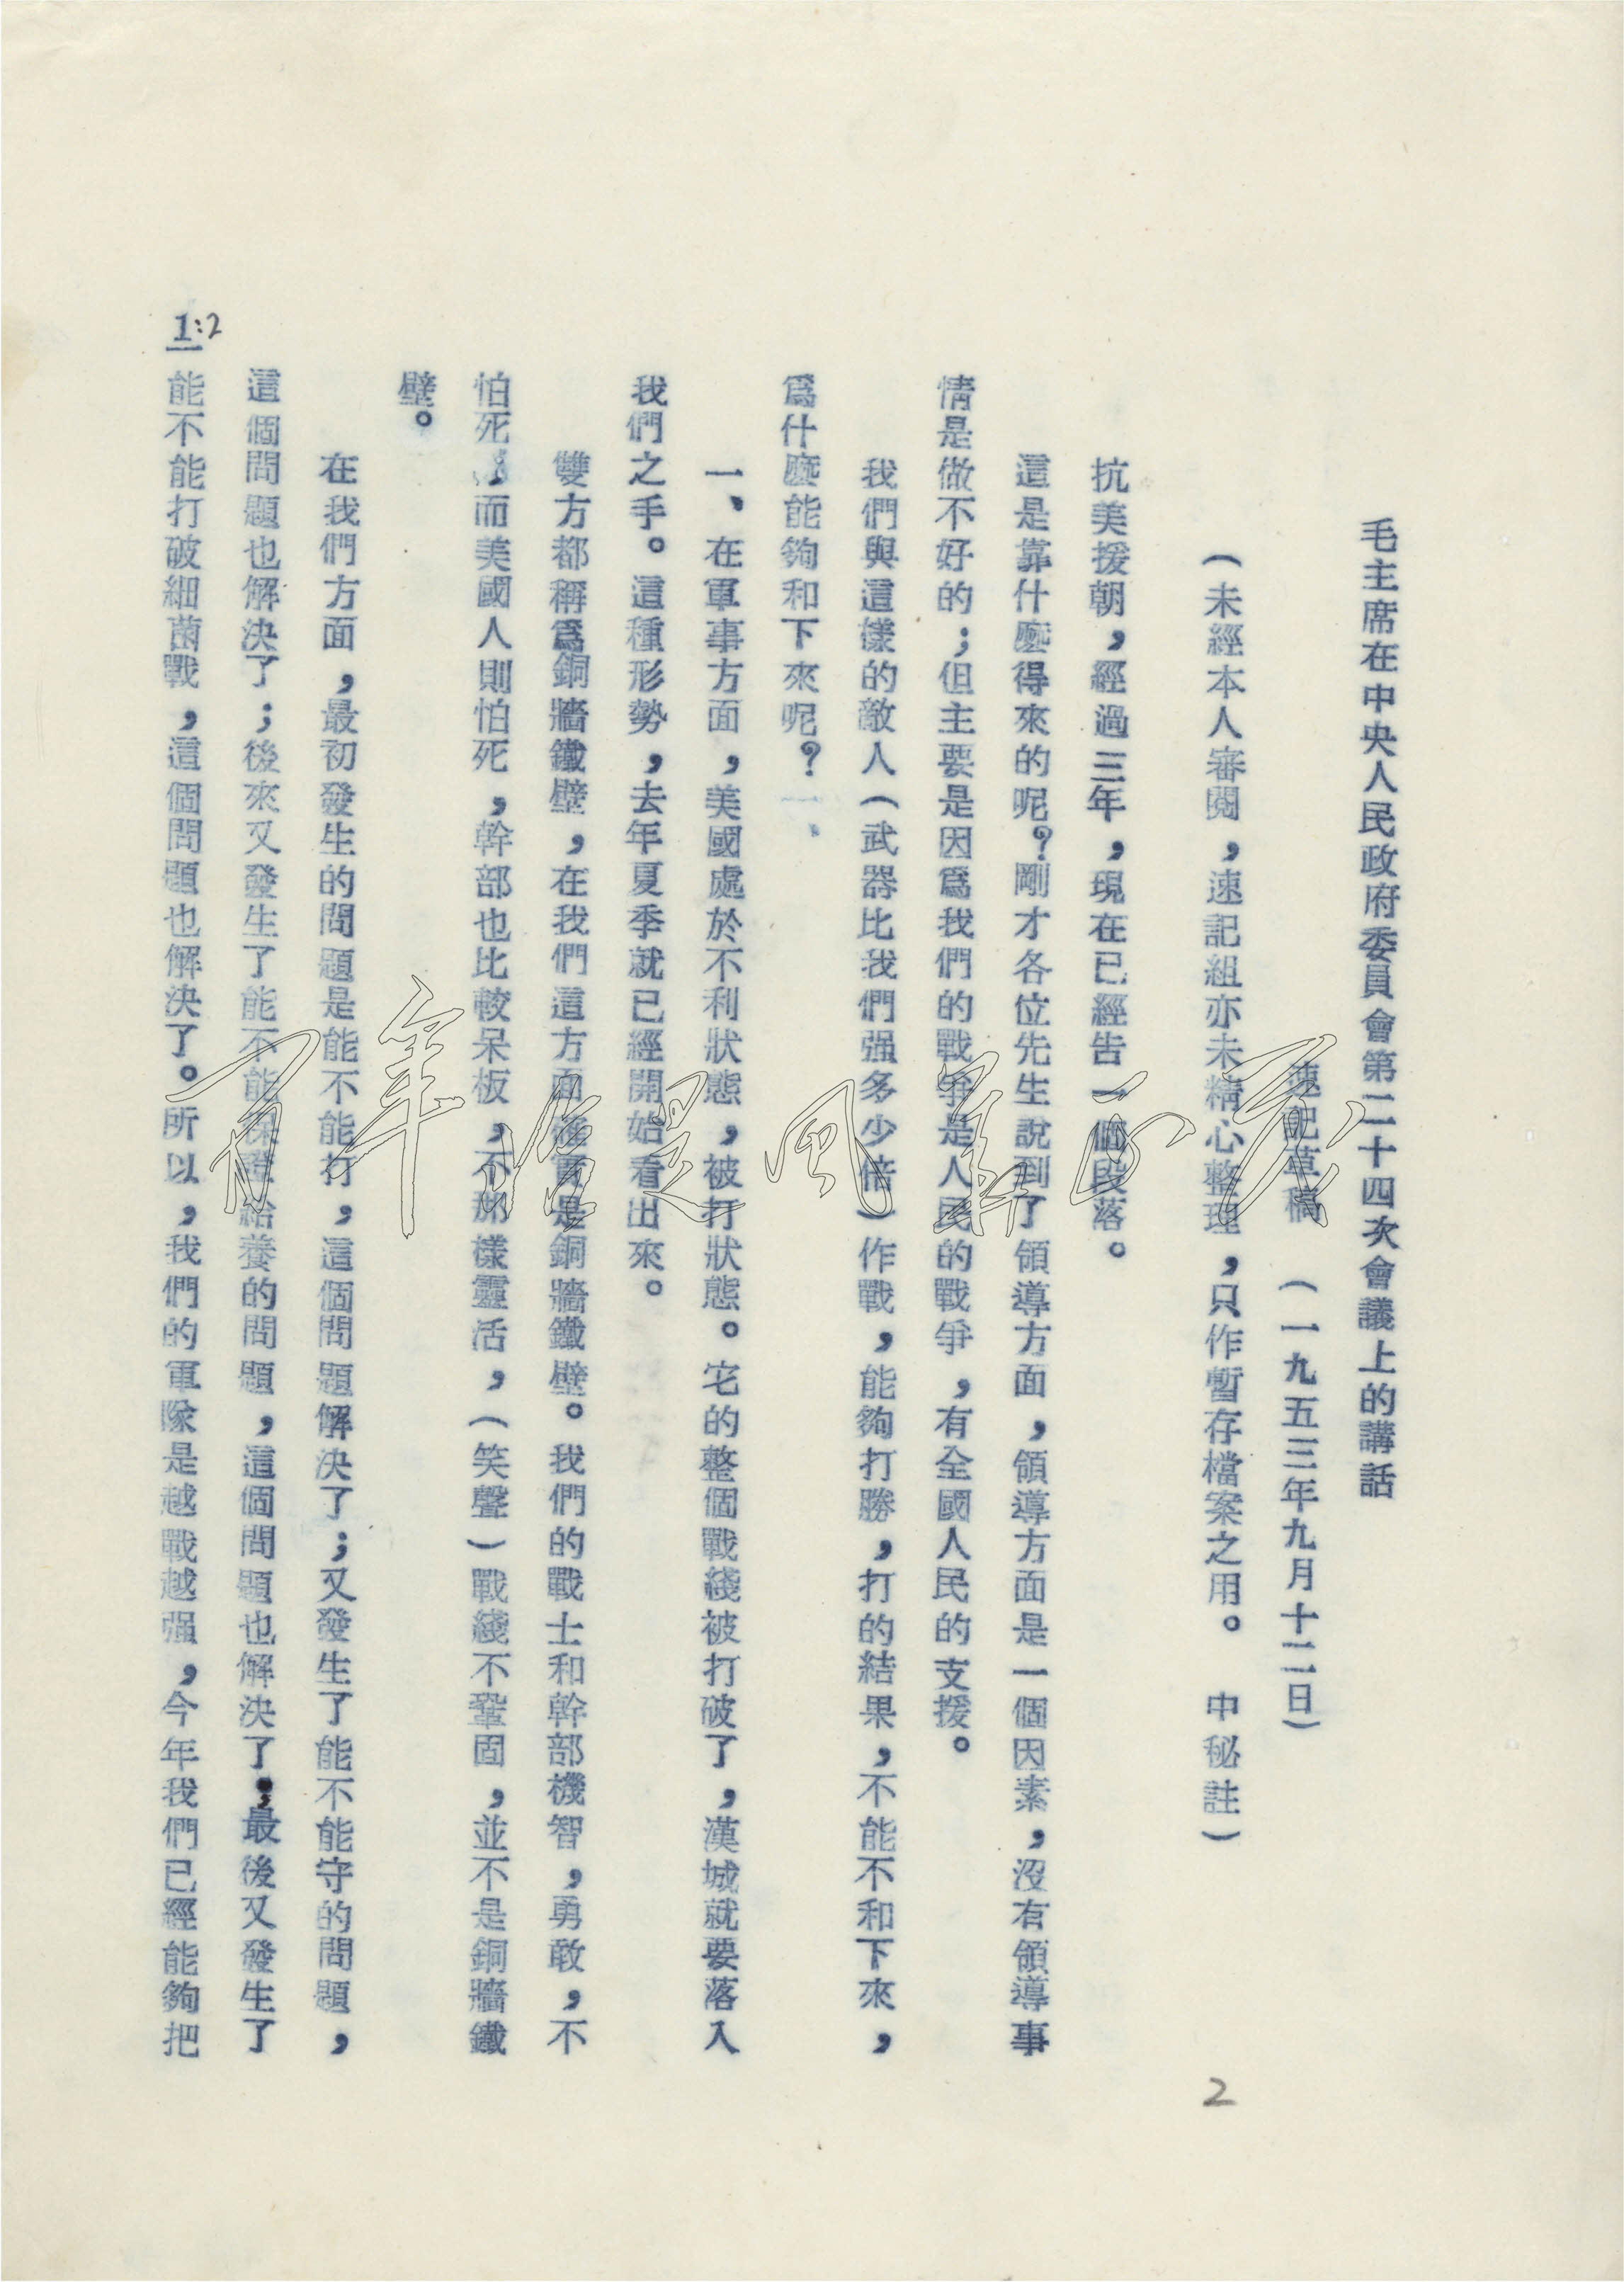 毛主席在中央人民政府委員會第二十四次會議上的講話
速記草稿　（一九五三年九月十二日）
（未經本人審閱，速記組亦未精心整理，只作暫存檔案之用。　中秘註）
抗美援朝，經過三年，現在已經告一個段落。
這是靠什麼得來的呢？剛才各位先生說到了領導方面，領導方面是一個因素，沒有領導事
情是做不好的；但主要是因爲我們的戰爭是人民的戰爭，有全國人民的支援。
我們與這樣的敵人（武器比我們强多少倍）作戰，能夠打勝，打的結果，不能不和下來，
爲什麼能夠和下來呢？一、
一、在軍事方面，美國處於不利狀態，被打狀態。它的整個戰綫被打破了，漢城就要落入
我們之手。這種形勢，去年夏季就已經開始看出來。
雙方都稱爲銅牆鐵壁，在我們這方面確實是銅牆鐵壁。我們的戰士和幹部機智，勇敢，不
怕死，而美國人則怕死，幹部也比較呆板，不那樣靈活，（笑聲）戰綫不鞏固，並不是銅牆鐵
壁。
在我們方面，最初發生的問題是能不能打，這個問題解決了；又發生了能不能守的問題，
這個問題也解決了；後來又發生了能不能保證給養的問題，這個問題也解決了；最後又發生了
能不能打破細菌戰，這個問題也解決了。所以，我們的軍隊是越戰越强，今年我們已經能夠把
1:2
2